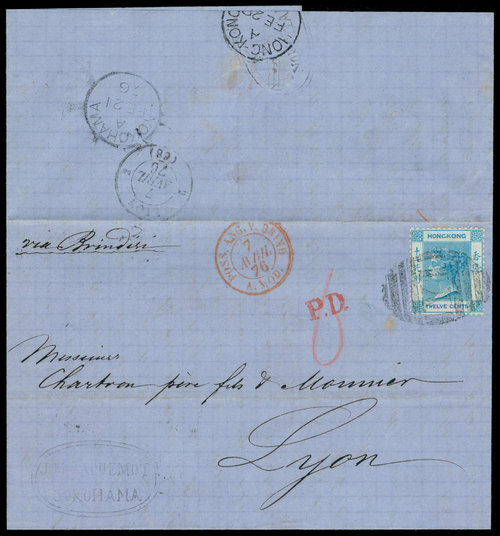 HONG-KONG
A
FE 29
YOKOHAMA
A
FE 21
76
7
AVRIL
76
(68)
via Brindisi
POSS. ANG. V. BRIND
7
AVRIL
76
A. MOD.
HONGKONG
TWELVE CENTS
P.D.
6
Messieurs
Chartron père fils & Monnier
Lyon
YOKOHAMA